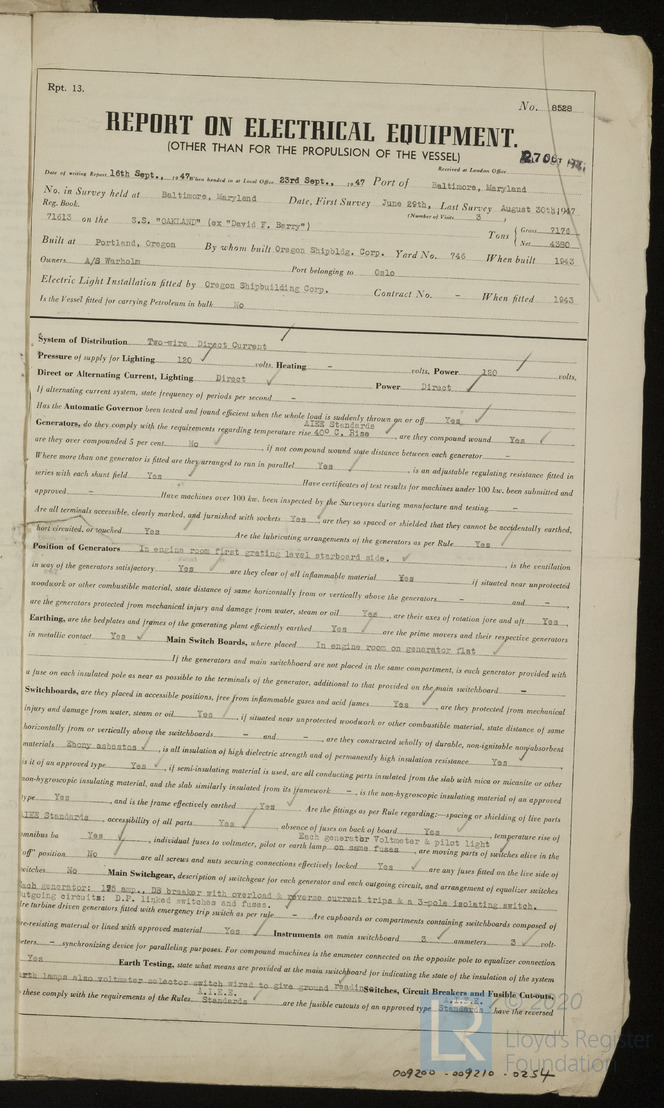 Rpt. 13.
No. 8528
REPORT ON ELECTRICAL EQUIPMENT.
(OTHER THAN FOR THE PROPULSION OF THE VESSEL)
Received at London Office
Date of writing Report 16th Sept., 1947 When handed in at Local Office 23rd Sept., 1947 Port of Baltimore, Maryland
No. in Survey held at Baltimore, Maryland Date, First Survey June 29th, Last Survey August 30th 1947
Reg. Book. (Number of Visits 3 )
71613 on the S.S. "OAKLAND" (ex "David F. Barry") Tons { Gross 7176
Net 4380
Built at Portland, Oregon By whom built Oregon Shipbldg. Corp. Yard No. 746 When built 1943
Owners A/S Warholm Port belonging to Oslo
Electric Light Installation fitted by Oregon Shipbuilding Corp. Contract No. - When fitted 1943
Is the Vessel fitted for carrying Petroleum in bulk No
System of Distribution Two-wire Direct Current
Pressure of supply for Lighting 120 volts, Heating - volts, Power 120 volts,
Direct or Alternating Current, Lighting Direct Power Direct
If alternating current system, state frequency of periods per second -
Has the Automatic Governor been tested and found efficient when the whole load is suddenly thrown on or off Yes
AIEE Standards
Generators, do they comply with the requirements regarding temperature rise 40° C. Rise, are they compound wound Yes
are they over compounded 5 per cent. No, if not compound wound state distance between each generator -
Where more than one generator is fitted are they arranged to run in parallel Yes, is an adjustable regulating resistance fitted in
series with each shunt field Yes Have certificates of test results for machines under 100 kw. been submitted and
approved - Have machines over 100 kw. been inspected by the Surveyors during manufacture and testing -
Are all terminals accessible, clearly marked, and furnished with sockets Yes, are they so spaced or shielded that they cannot be accidentally earthed,
hort circuited, or touched Yes Are the lubricating arrangements of the generators as per Rule Yes
Position of Generators In engine room first grating level starboard side. , is the ventilation
in way of the generators satisfactory Yes are they clear of all inflammable material Yes if situated near unprotected
woodwork or other combustible material, state distance of same horizontally from or vertically above the generators - and -,
are the generators protected from mechanical injury and damage from water, steam or oil Yes, are their axes of rotation fore and aft Yes,
Earthing, are the bedplates and frames of the generating plant efficiently earthed Yes are the prime movers and their respective generators
in metallic contact Yes Main Switch Boards, where placed In engine room on generator flat
If the generators and main switchboard are not placed in the same compartment, is each generator provided with
a fuse on each insulated pole as near as possible to the terminals of the generator, additional to that provided on the main switchboard -
Switchboards, are they placed in accessible positions, free from inflammable gases and acid fumes Yes, are they protected from mechanical
injury and damage from water, steam or oil Yes, if situated near unprotected woodwork or other combustible material, state distance of same
horizontally from or vertically above the switchboards - and -, are they constructed wholly of durable, non-ignitable non-absorbent
materials Ebony asbestos, is all insulation of high dielectric strength and of permanently high insulation resistance Yes,
is it of an approved type Yes, if semi-insulating material is used, are all conducting parts insulated from the slab with mica or micanite or other
non-hygroscopic insulating material, and the slab similarly insulated from its framework -, is the non-hygroscopic insulating material of an approved
type Yes, and is the frame effectively earthed Yes. Are the fittings as per Rule regarding:—spacing or shielding of live parts
AIEE Standards, accessibility of all parts Yes, absence of fuses on back of board Yes, temperature rise of
omnibus ba Yes, individual fuses to voltmeter, pilot or earth lamp Each generator Voltmeter & pilot light on same fuses, are moving parts of switches alive in the
"off" position No are all screws and nuts securing connections effectively locked Yes are any fuses fitted on the live side of
witches No Main Switchgear, description of switchgear for each generator and each outgoing circuit, and arrangement of equalizer switches
Each generator: 195 amp., DB breaker with overload & reverse current trips & a 3-pole isolating switch.
utgoing circuits: D.P. linked switches and fuses.
re turbine driven generators fitted with emergency trip switch as per rule - Are cupboards or compartments containing switchboards composed of
re-resisting material or lined with approved material Yes Instruments on main switchboard 3 ammeters 3 volt-
eters - synchronizing device for paralleling purposes. For compound machines is the ammeter connected on the opposite pole to equalizer connection
Yes Earth Testing, state what means are provided at the main switchboard for indicating the state of the insulation of the system
arth lamps also voltmeter selector switch wired to give ground reading Switches, Circuit Breakers and Fusible Cut-outs,
these comply with the requirements of the Rules A.I.E.E. Standards are the fusible cutouts of an approved type A.I.E.E. Standards have the reversed
© 2020
LR
Lloyd's Register
Foundation
009200 - 009210 - 0254